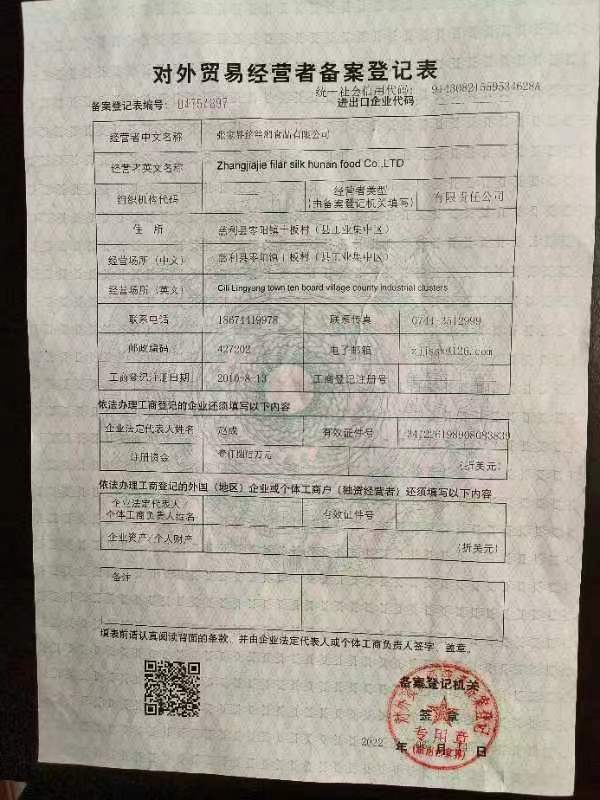 对外贸易经营者备案登记表
统一社会信用代码:
备案登记表编号:
进出口企业代码
经营者中文名称
经营者英文名称 Zhangjiajie filar silk hunan food Co.,LTD
组织机构代码 经营者类型 (由备案登记机关填写) 有限责任公司
住 所 慈利县零阳镇十板村（县工业集中区）
经营场所（中文） 慈利县零阳镇十板村（县工业集中区）
经营场所（英文） Cili Lingyang town ten board village county industrial clusters
联系电话 18674419978 联系传真 0744-2512999
邮政编码 427202 电子邮箱
工商登记注册日期 2010-8-13 工商登记注册号
依法办理工商登记的企业还须填写以下内容
企业法定代表人姓名 有效证件号
注册资金 (折美元)
依法办理工商登记的外国（地区）企业或个体工商户（独资经营者）还须填写以下内容
企业法定代表人/
个体工商负责人姓名 有效证件号
企业资产/个人财产 (折美元)
备注
填表前请认真阅读背面的条款，并由企业法定代表人或个体工商负责人签字、盖章。
备案登记机关
签 章
专用章
2022 年 月 日